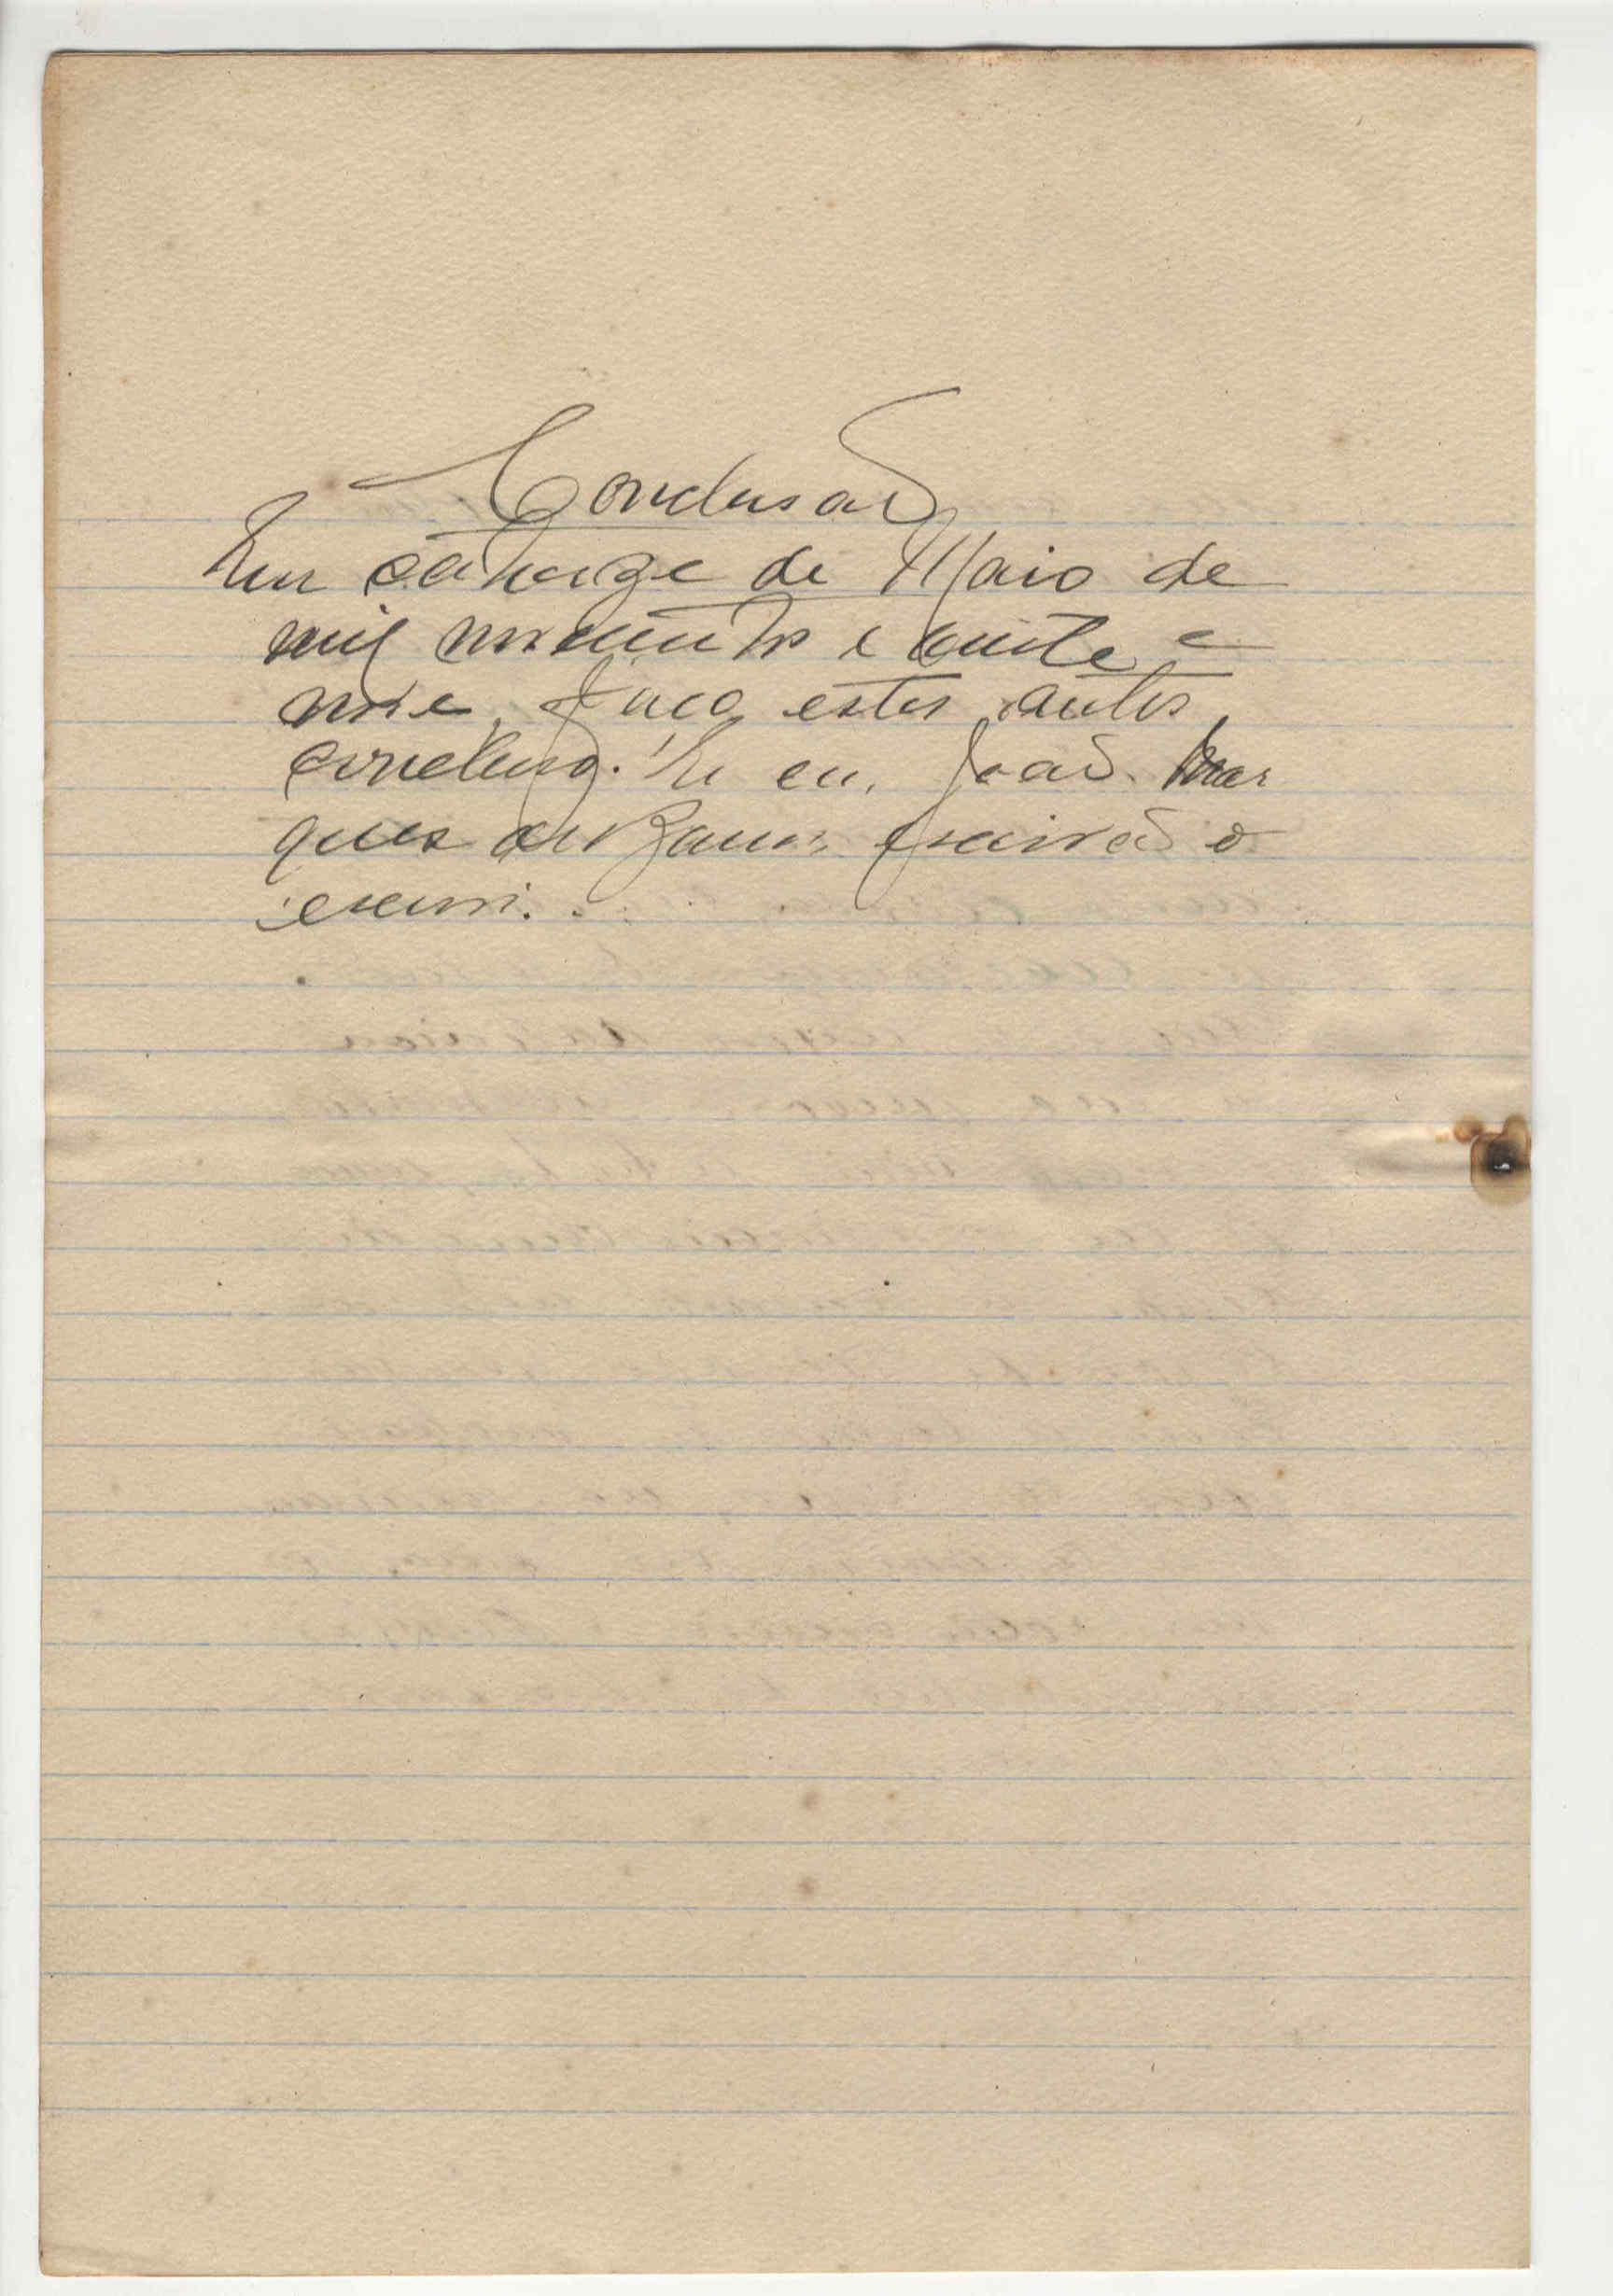 Conclusaõ
Em catorze de Maio de
mil novecentos e vinte e
nove, faço estes autos
conclusos. Eu eu, João Mar
ques de Barros, escrivão o
escrevi.